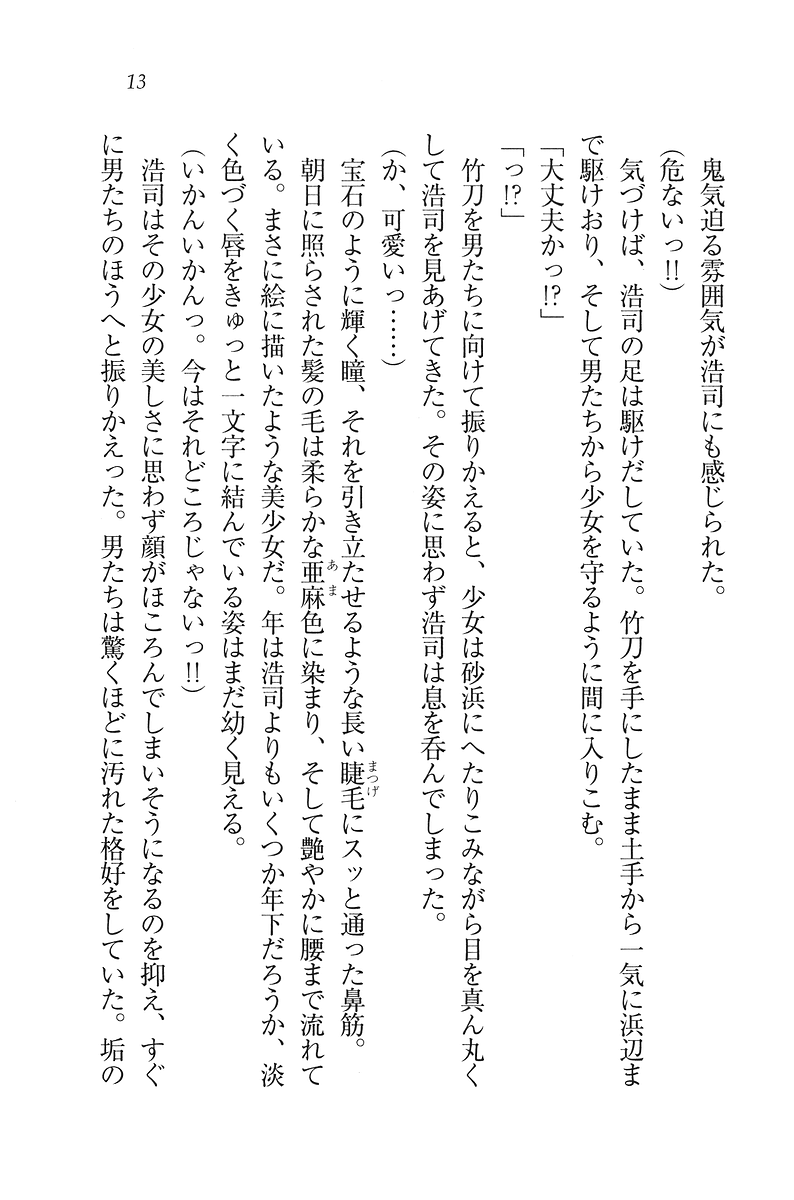 13
鬼気迫る雰囲気が浩司にも感じられた。
(危ないっ!!)
気づけば、浩司の足は駆けだしていた。竹刀を手にしたまま土手から一気に浜辺ま
で駆けおり、そして男たちから少女を守るように間に入りこむ。
「大丈夫かっ!?」
「っ!?」
竹刀を男たちに向けて振りかえると、少女は砂浜にへたりこみながら目を真ん丸く
して浩司を見あげてきた。その姿に思わず浩司は息を呑んでしまった。
(か、可愛いっ……)
宝石のように輝く瞳、それを引き立たせるような長い睫毛にスッと通った鼻筋。
まつげ
朝日に照らされた髪の毛は柔らかな亜麻色に染まり、そして艶やかに腰まで流れて
あま
いる。まさに絵に描いたような美少女だ。年は浩司よりもいくつか年下だろうか、淡
く色づく唇をきゅっと一文字に結んでいる姿はまだ幼く見える。
(いかんいかんっ。今はそれどころじゃないっ!!)
浩司はその少女の美しさに思わず顔がほころんでしまいそうになるのを抑え、すぐ
に男たちのほうへと振りかえった。男たちは驚くほどに汚れた格好をしていた。垢の